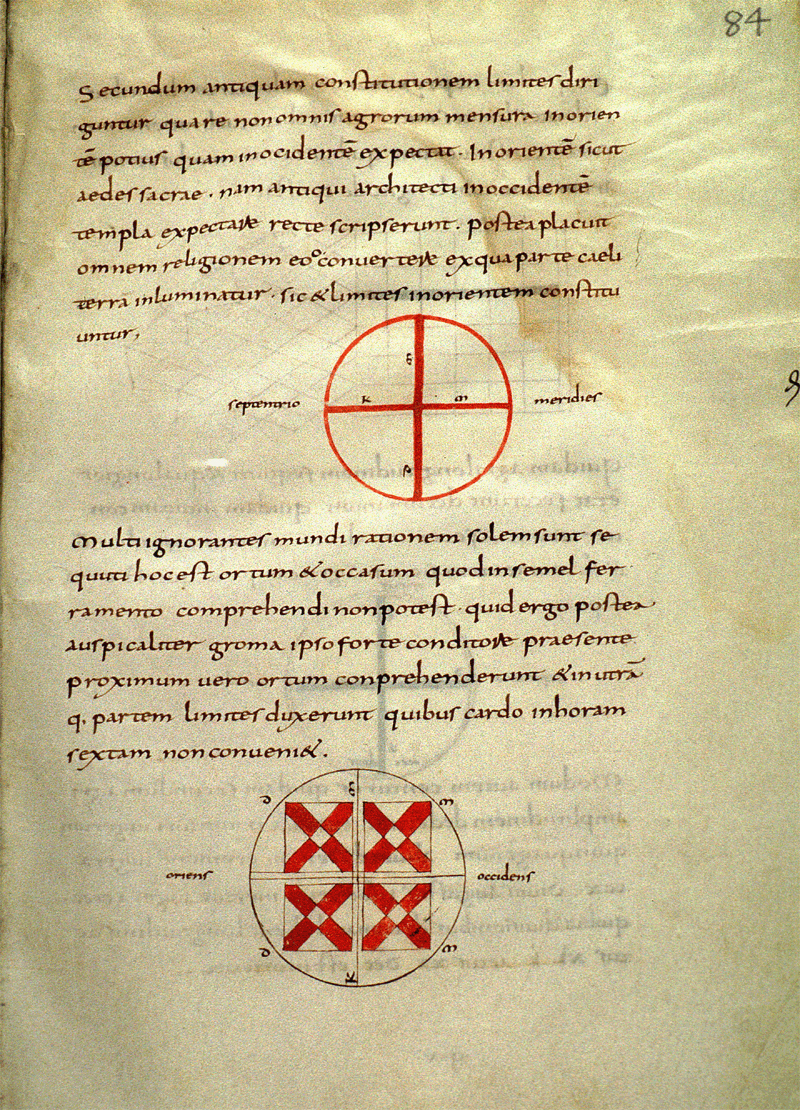 84
Secundum antiquam constitutionem limites diri
guntur quare non omnis agrorum mensura in orien
tē potius quam in ocidentē expectat. In orientē sicut
aedes sacrae. nam antiqui architecti in occidentē
templa expectare recte scripserunt. postea placuit
omnem religionem eo convertere ex qua parte caeli
terra inluminatur. sic & limites in orientem constitu
untur,
septentrio k m meridies
Multi ignorantes mundi rationem solem sunt se
quuti hoc est ortum & occasum quod in semel fer
ramento comprehendi non potest. quid ergo postea
auspicaliter groma ipso forte conditore praesente
proximum uero ortum conprehenderunt & in utrā
q, partem limites duxerunt quibus cardo in horam
sextam non conueni&.
d m
oriens occidens
d m
k